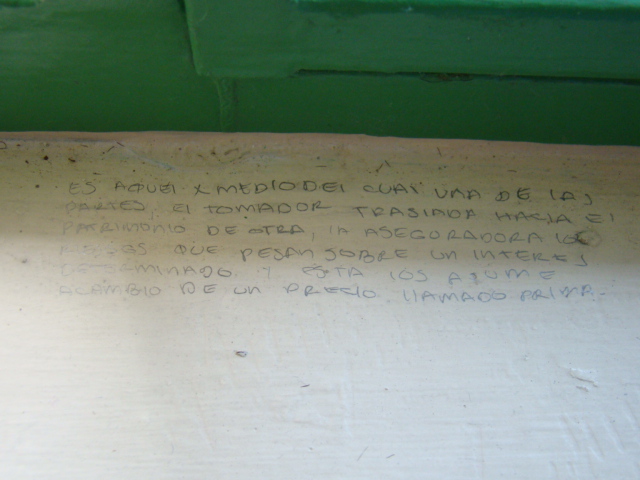 ES AQUEL X MEDIO DEL CUAL UNA DE LAS
PARTES, El TOMADOR TRASLADA HACIA El
PATRIMONIO DE OTRA, lA ASEGORADORA lOS
RIESGOS QUE PESAN SOBRE UN INTERES
DETERMINADO Y ESTA lOS ASUME
A CAMBIO DE UN PRECIO llAMADO PRIMA.